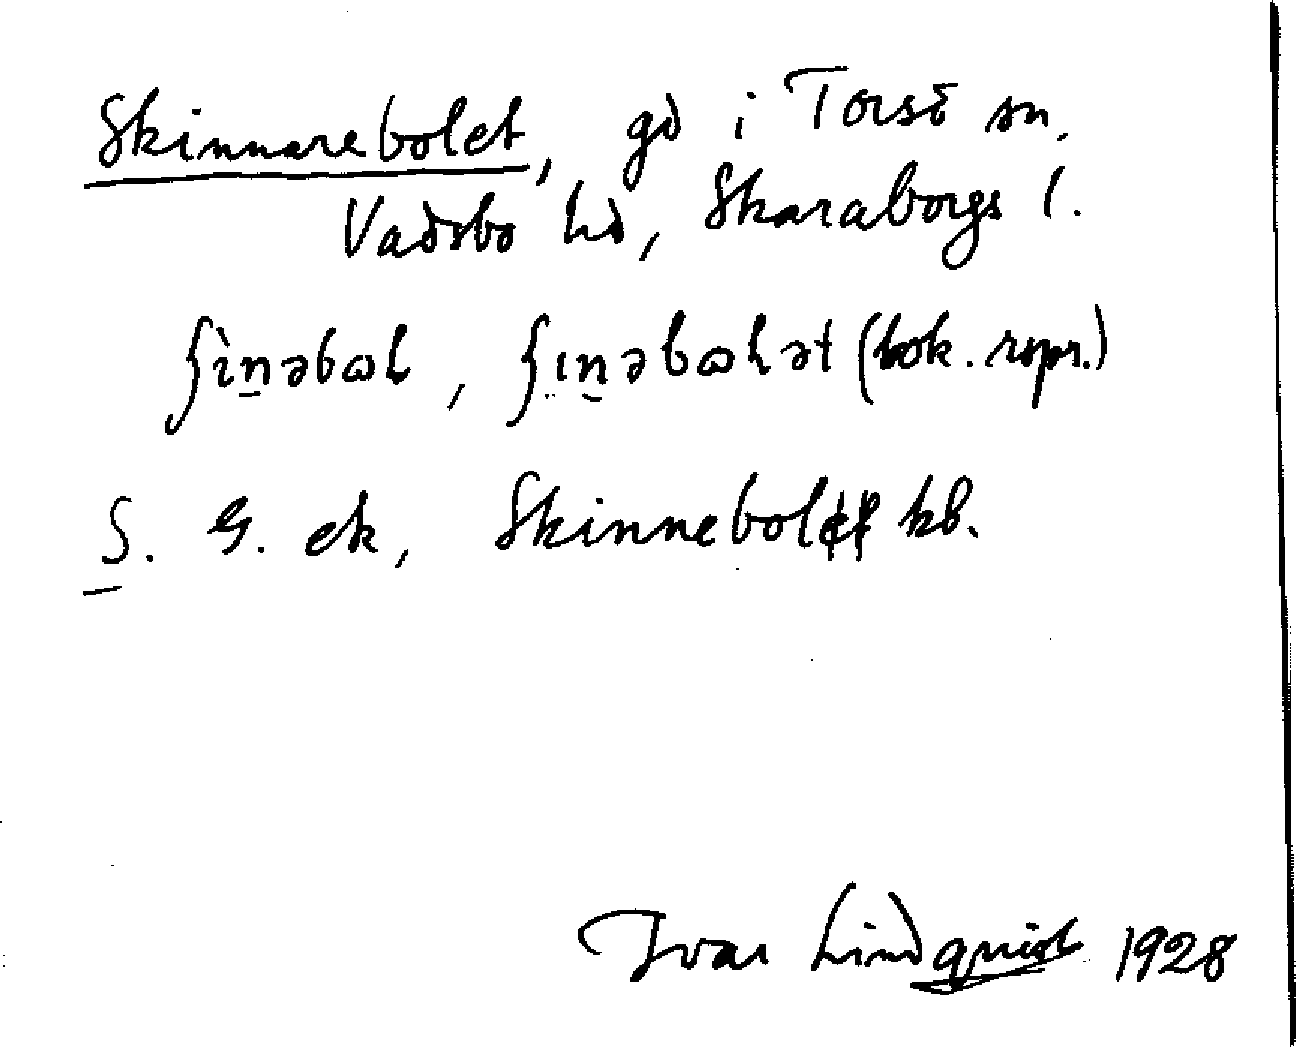 Skinnarebolet, gd i Torsö sn.
Vadsbo hd, Skaraborgs l.
ʃìn̠əbɷɫ, ʃın̠əbɷɫət (bok. repr.)
S. G. ek, Skinnebolet kb.
Ivar Lindquist 1928